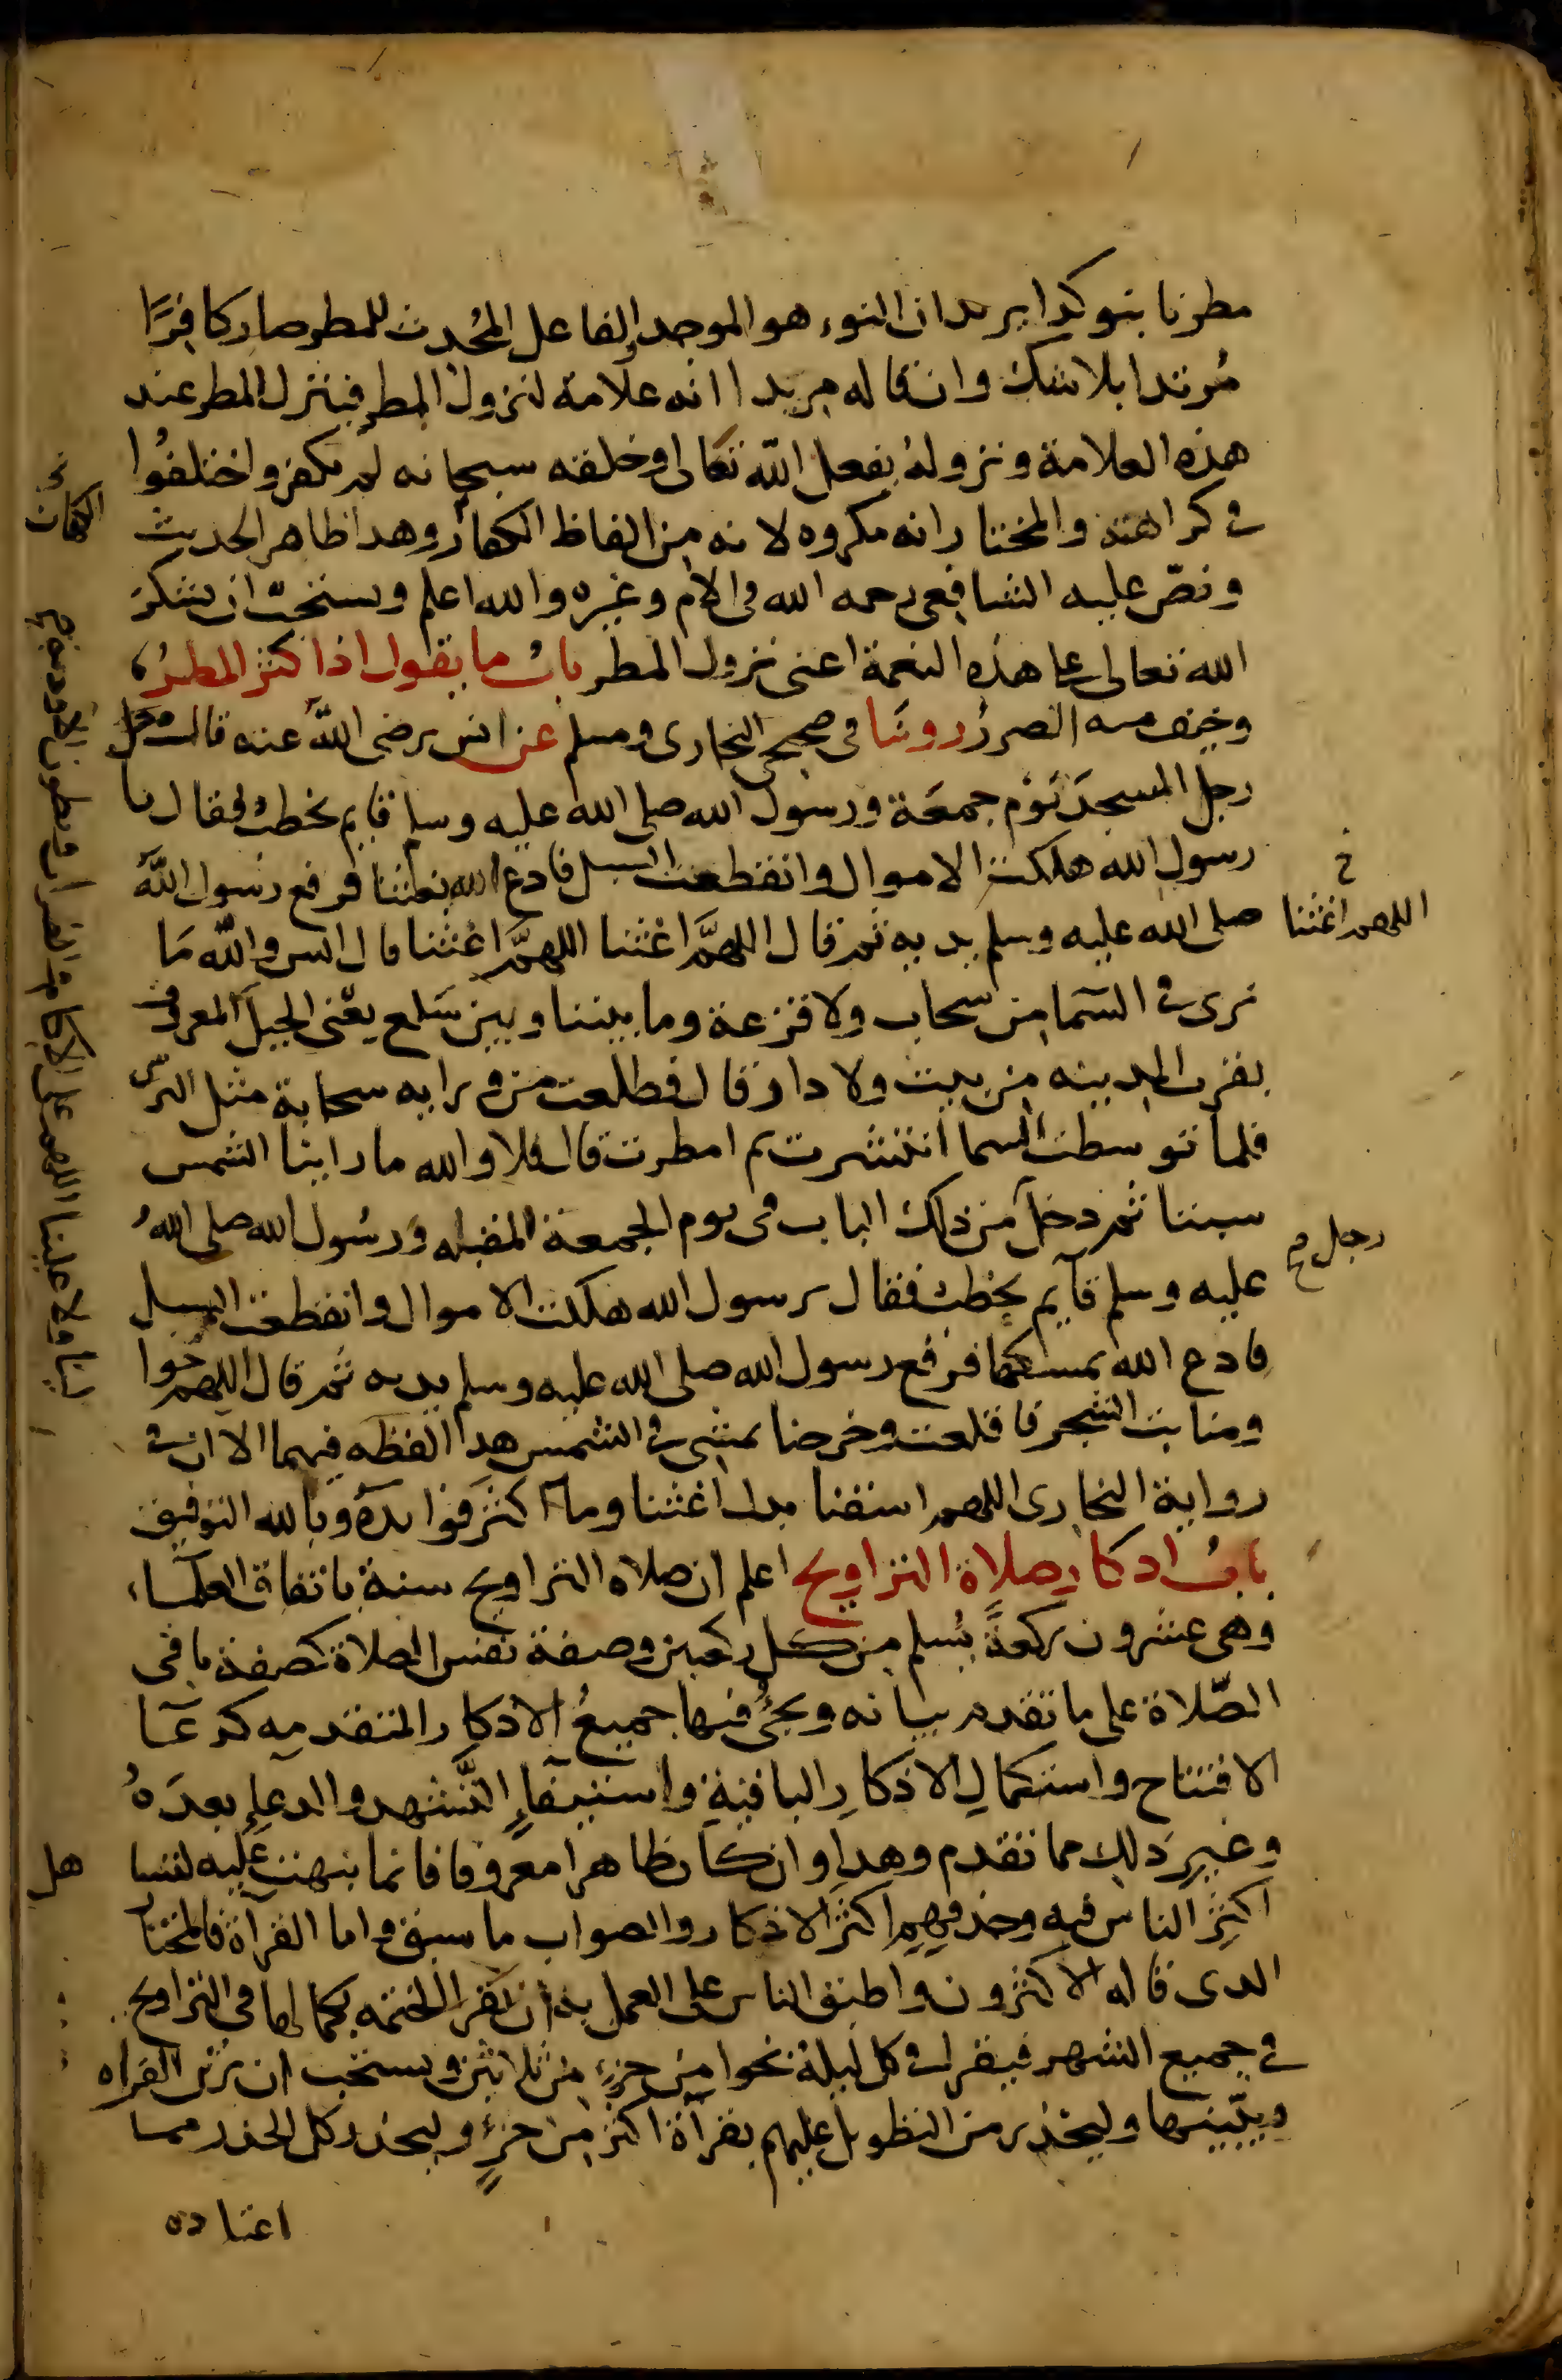 مطرنا بنو كذا يريد ان النوء هو الموجد الفاعل المحُدث للمطر صار كافِرًا
مُرتدا بلا شك وان قاله مريدا انه علامة لنزول المطر فينزل المطر عند
هذه العلامة ونزولهُ بفعل الله تعالى وخلقه سبحانه لم يكفر واختلفُوا
في كراهته والمختار انه مكروه لانه من الفاظ الكفار وهدا ظاهر الحديث
ونصّ عليه الشافعى رحمه الله فى الام وغيره والله اعلم ويستحبّ ان يشكر
الله تعالى على هذه النعمة اعنى نزول المطر بابُ ما يقول اذا كثر المطرُ
وخيف منه الضرر روينا فى صحيحى البخارى ومسلم عن انس رضى الله عنه قال دخل
رجل المسجدَ يَوْم جمعَة ورسول الله صلى الله عليه وسلم قايم يخطبُ فقال يا
رسول الله هلكت الاموال وانقطعت السبل فادع الله يغثنا فرفع رسول الله
صلى الله عليه وسلم يديه ثم قال اللهمَّ اغثنا اللهمَّ اغثنا قال انس والله مَا
نرى في السَّما من سحاب ولا قزعة وما بيننا وبين سَلع يعْنى الجبلَ المعروف
بقرب المدينه من بيت ولا دار قال فطلعت من ورايه سحابة مثل الترس
فلما توسطت السما انتشرت ثم امطرت قال فلا والله ما راينا الشمس
سبتنا ثم دخل من ذلك الباب فى يوم الجمعة المقبله ورسُول الله صلى اللهُ
عليه وسلم قآيم يخطب فقال يرسول الله هلكت الاموال وانقطعت السبل
فادع الله يمسكها فرفع رسول الله صلى الله عليه وسلم يديه ثم قال اللهم حوا
ومنابت الشجر فاقلعت وخرجنا نمشى في الشمس هدا لفظه فيهما الا ان في
رواية البخارى اللهم اسقنا بدل اغثنا وما اكثر فوايده وبالله التوفيق
بابُ ادكارِ صلاة التراويح اعلم ان صلاه التراويح سنة باتفاق العلماء
وهى عشرون ركعةً يُسلم من كل ركعتين وصفة نفس الصلاة كصفة باقى
الصّلاة على ما تقدم بيانه ويجئُ فيها جميعُ الادكار المتقدمه كدعَا
الافتتاح واستكمالِ الاذكارِ الباقيةِ واستيفآءِ التَّشهد والدعاءِ بعدَهُ
وغيرِ ذلك مما تقدم وهدا وان كان ظاهرا معروفا فانما نبهت عليه لتسا
اكثرِ الناس فيه وحذفهم اكثر الاذكار والصواب ما سبق واما القرآة فالمختار
الدى قاله الاكثرون واطبق الناس على العمل به ان تقرا الختمه بكمالها فى التراويح
في جميع الشهر فيقرا في كل ليلة نحوا من جزءٍ من ثلاثين ويستحب ان يرتل القراه
ويبيّنها وليحذر من التطويل عليهم بقرآة اكثر من جزءٍ وليحذر كل الحذر مما
اعتاده
الكفار
خ
اللهم اغثنا
رجل
هل
لينا ولا علينا اللهم على الاكام والظراب وبطون الاودية